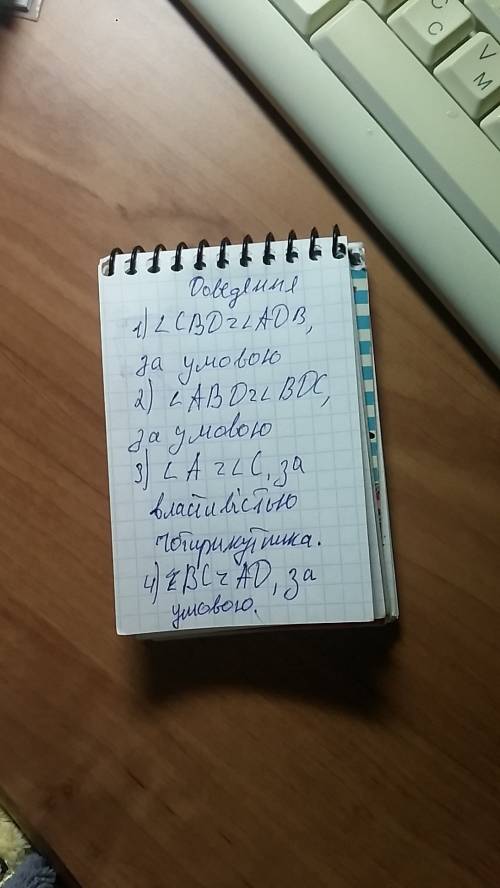 Доведення
1) ∠CBD = ∠ADB,
за умовою
2) ∠ABD = ∠BDC,
за умовою
3) ∠A = ∠C, за
властивістю
чотирикутника.
4) BC = AD, за
умовою.
C
C
V
M